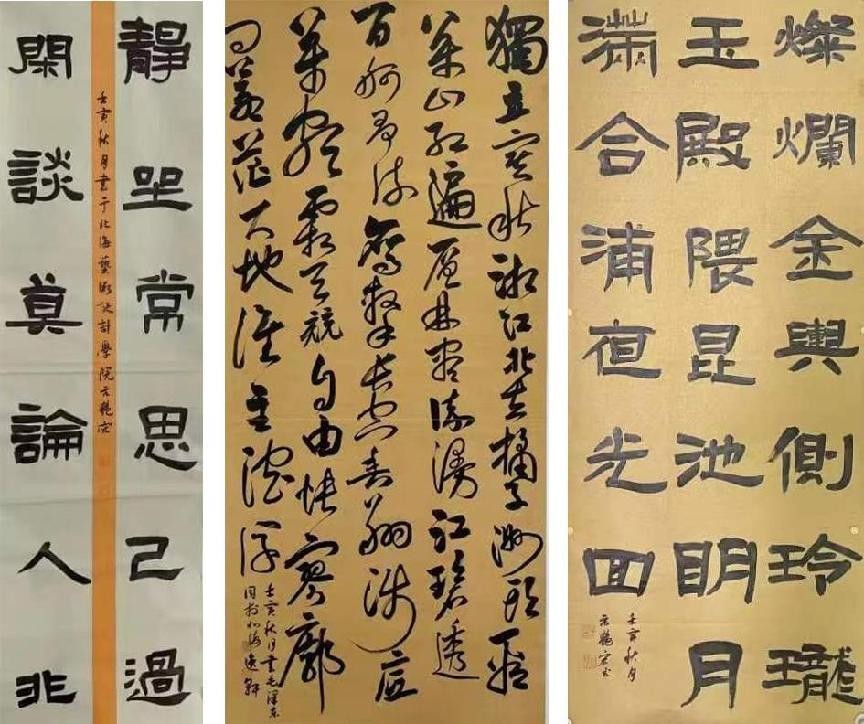 靜坐常思己過
壬寅秋月書于北海藝術設計學院
閑談莫論人非
獨立寒秋湘江北去橘子洲頭看
萬山紅遍層林盡染漫江碧透
百舸爭流鷹擊長空魚翔淺底
萬類霜天競自由悵寥廓
問蒼茫大地誰主沉浮
壬寅秋月書毛澤東
詞於北海
燦爛金輿側玲瓏
玉殿隈昆池明月
滿合浦夜光回
壬寅秋月